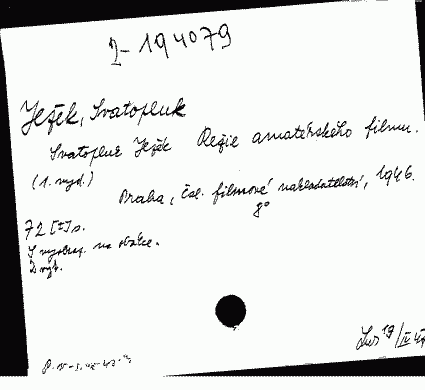 2-194079
Ježek, Svatopluk
Svatopluk Ježek Režie amatérského filmu.
(1. vyd.)
Praha, čsl. filmové nakladatelství, 1946.
8°
72 [I] s.
S vyobraz. na obálce.
2 výt.
19/IV 47